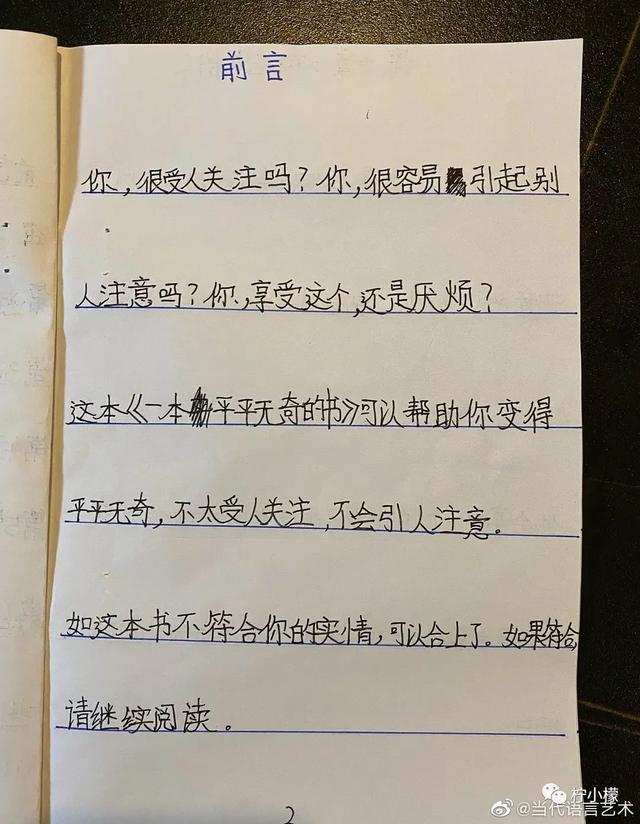 前言
你，很受人关注吗？你，很容易引起别
人注意吗？你，享受这个，还是厌烦？
这本《一本平平无奇的书》可以帮助你变得
平平无奇，不太受人关注，不会引人注意。
如这本书不符合你的实情，可以合上了。如果符合，
请继续阅读。
2
柠小檬
@当代语言艺术